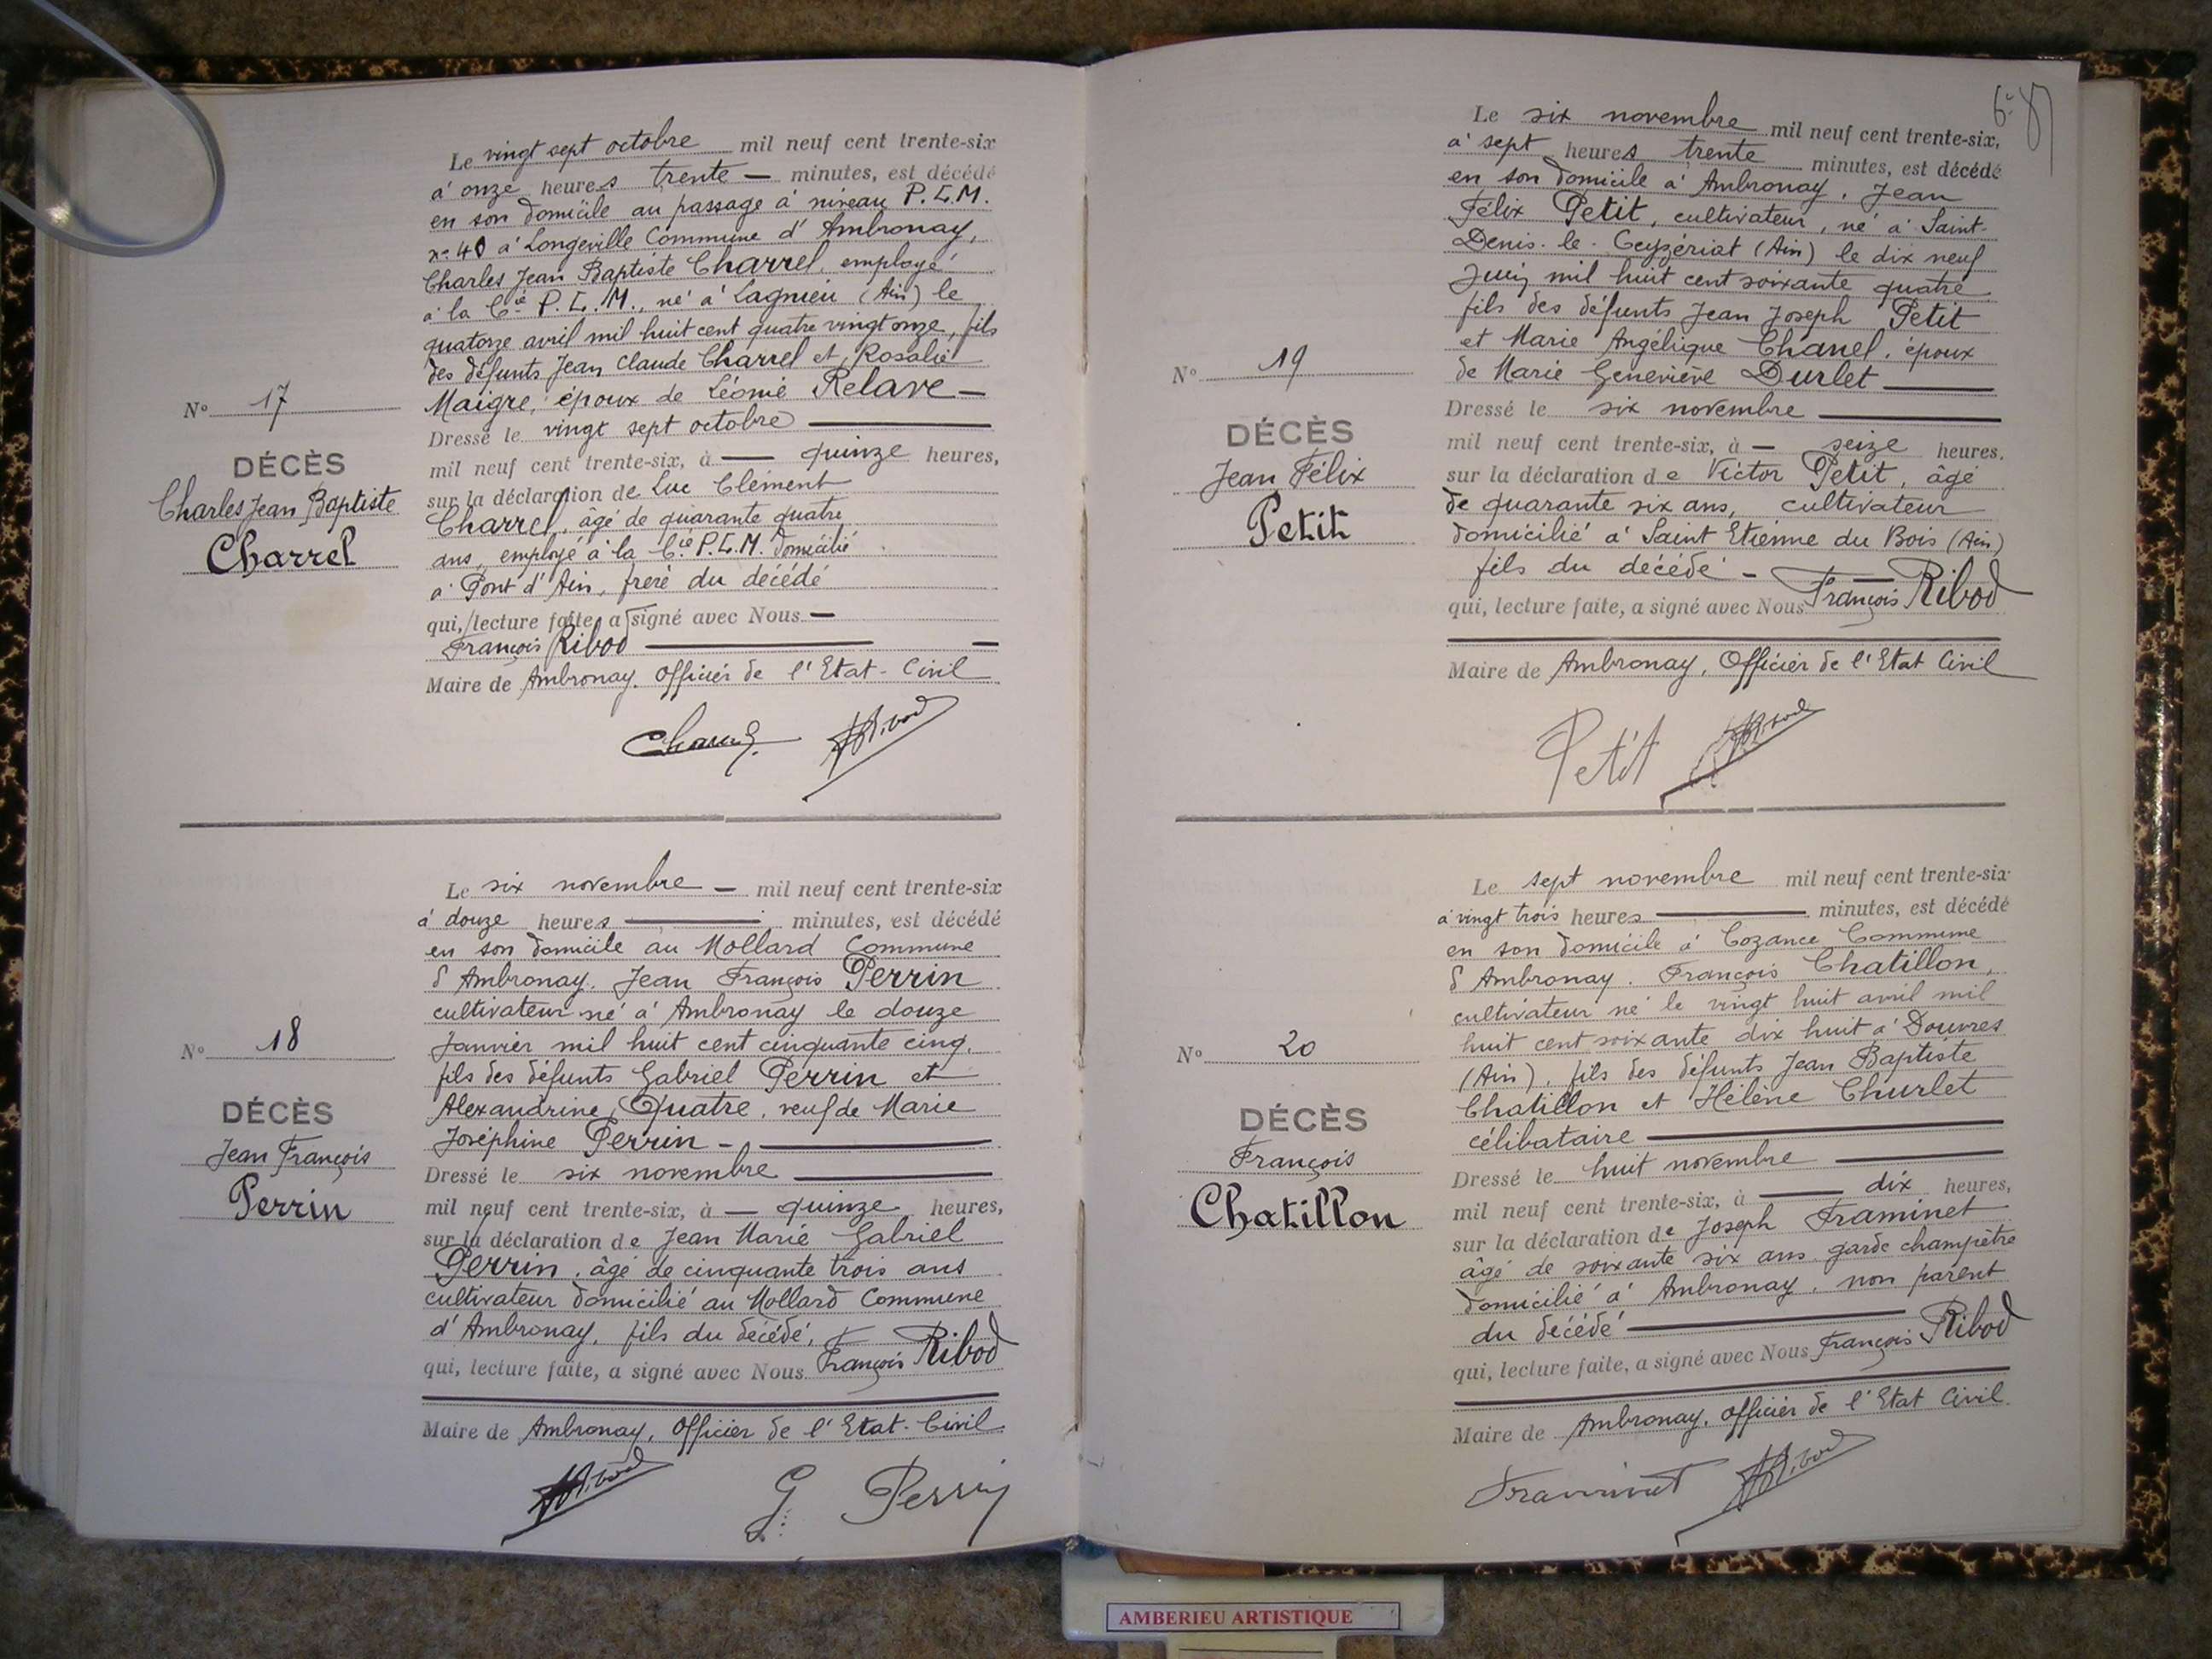 N° 17
DÉCÈS
Charles Jean Baptiste
Charrel
Le vingt sept octobre mil neuf cent trente-six
à onze heures trente — minutes, est décédé
en son domicile au passage à niveau P.L.M.
n° 40 à Longeville Commune d'Ambronay,
Charles Jean Baptiste Charrel, employé
à la Cie P.L.M., né à Lagnieu (Ain) le
quatorze avril mil huit cent quatre vingt onze, fils
des défunts Jean Claude Charrel et Rosalie
Maigre, époux de Léonie Relave —
Dressé le vingt sept octobre
mil neuf cent trente-six, à — quinze heures,
sur la déclaration de Luc Clément
Charrel, âgé de quarante quatre
ans, employé à la Cie P.L.M. domicilié
à Pont d'Ain, frère du décédé
qui, lecture faite, a signé avec Nous —
François Ribod
Maire de Ambronay. Officier de l'Etat-Civil
N° 18
DÉCÈS
Jean François
Perrin
Le six novembre — mil neuf cent trente-six
à douze heures — minutes, est décédé
en son domicile au Mollard Commune
d'Ambronay. Jean François Perrin
cultivateur né à Ambronay le douze
Janvier mil huit cent cinquante cinq.
fils des défunts Gabriel Perrin et
Alexandrine Quatre, veuf de Marie
Joséphine Perrin —
Dressé le six novembre
mil neuf cent trente-six, à — quinze heures,
sur la déclaration de Jean Marie Gabriel
Perrin, âgé de cinquante trois ans
cultivateur domicilié au Mollard Commune
d'Ambronay, fils du décédé,
qui, lecture faite, a signé avec Nous François Ribod
Maire de Ambronay, Officier de l'Etat-Civil
G. Perrin
N° 19
DÉCÈS
Jean Félix
Petit
Le six novembre mil neuf cent trente-six,
à sept heures trente minutes, est décédé
en son domicile à Ambronay, Jean
Félix Petit, cultivateur, né à Saint-
Denis-le-Ceyzériat (Ain) le dix neuf
Juin mil huit cent soixante quatre
fils des défunts Jean Joseph Petit
et Marie Angélique Chanel, époux
de Marie Geneviève Durlet
Dressé le six novembre
mil neuf cent trente-six, à — seize heures,
sur la déclaration de Victor Petit, âgé
de quarante six ans, cultivateur
domicilié à Saint Etienne du Bois (Ain)
fils du décédé —
qui, lecture faite, a signé avec Nous François Ribod
Maire de Ambronay, Officier de l'Etat Civil
Petit
N° 20
DÉCÈS
François
Chatillon
Le sept novembre mil neuf cent trente-six
à vingt trois heures — minutes, est décédé
en son domicile à Cozance Commune
d'Ambronay. François Chatillon,
cultivateur né le vingt huit avril mil
huit cent soixante dix huit à Douvres
(Ain), fils des défunts Jean Baptiste
Chatillon et Hélène Churlet
célibataire
Dressé le huit novembre
mil neuf cent trente-six, à — dix heures,
sur la déclaration de Joseph Framinet
âgé de soixante six ans garde champêtre
domicilié à Ambronay, non parent
du décédé
qui, lecture faite, a signé avec Nous François Ribod
Maire de Ambronay, Officier de l'Etat Civil.
Framinet
AMBERIEU ARTISTIQUE